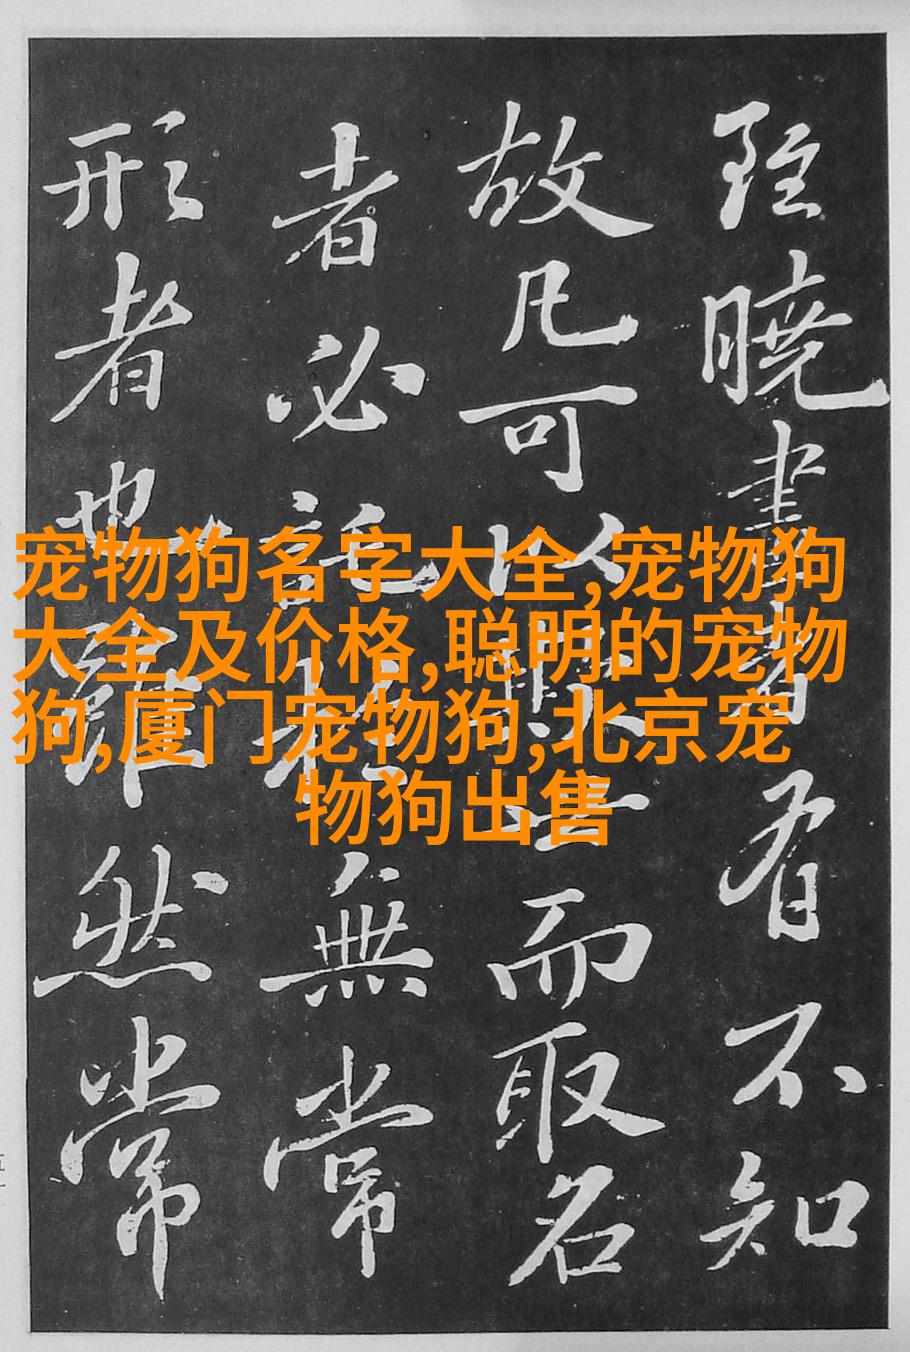 雖曉畫者有不知
故凡可以欺世而取名
者必託於無常
形者也雖然常
宠物狗名字大全,宠物狗
大全及价格,聪明的宠物
狗,厦门宠物狗,北京宠
物狗出售